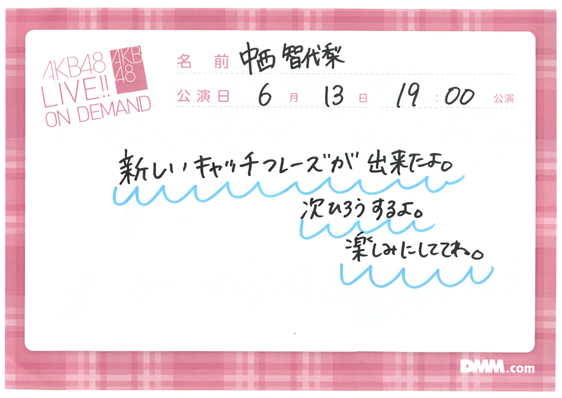 AKB48
LIVE!!
ON DEMAND
AKB
48
名前 中西智代梨
公演日 6月 13日 19:00 公演
新しいキャッチフレーズが出来たよ。
次ひろうするよ。
楽しみにしててね。
DMM.com